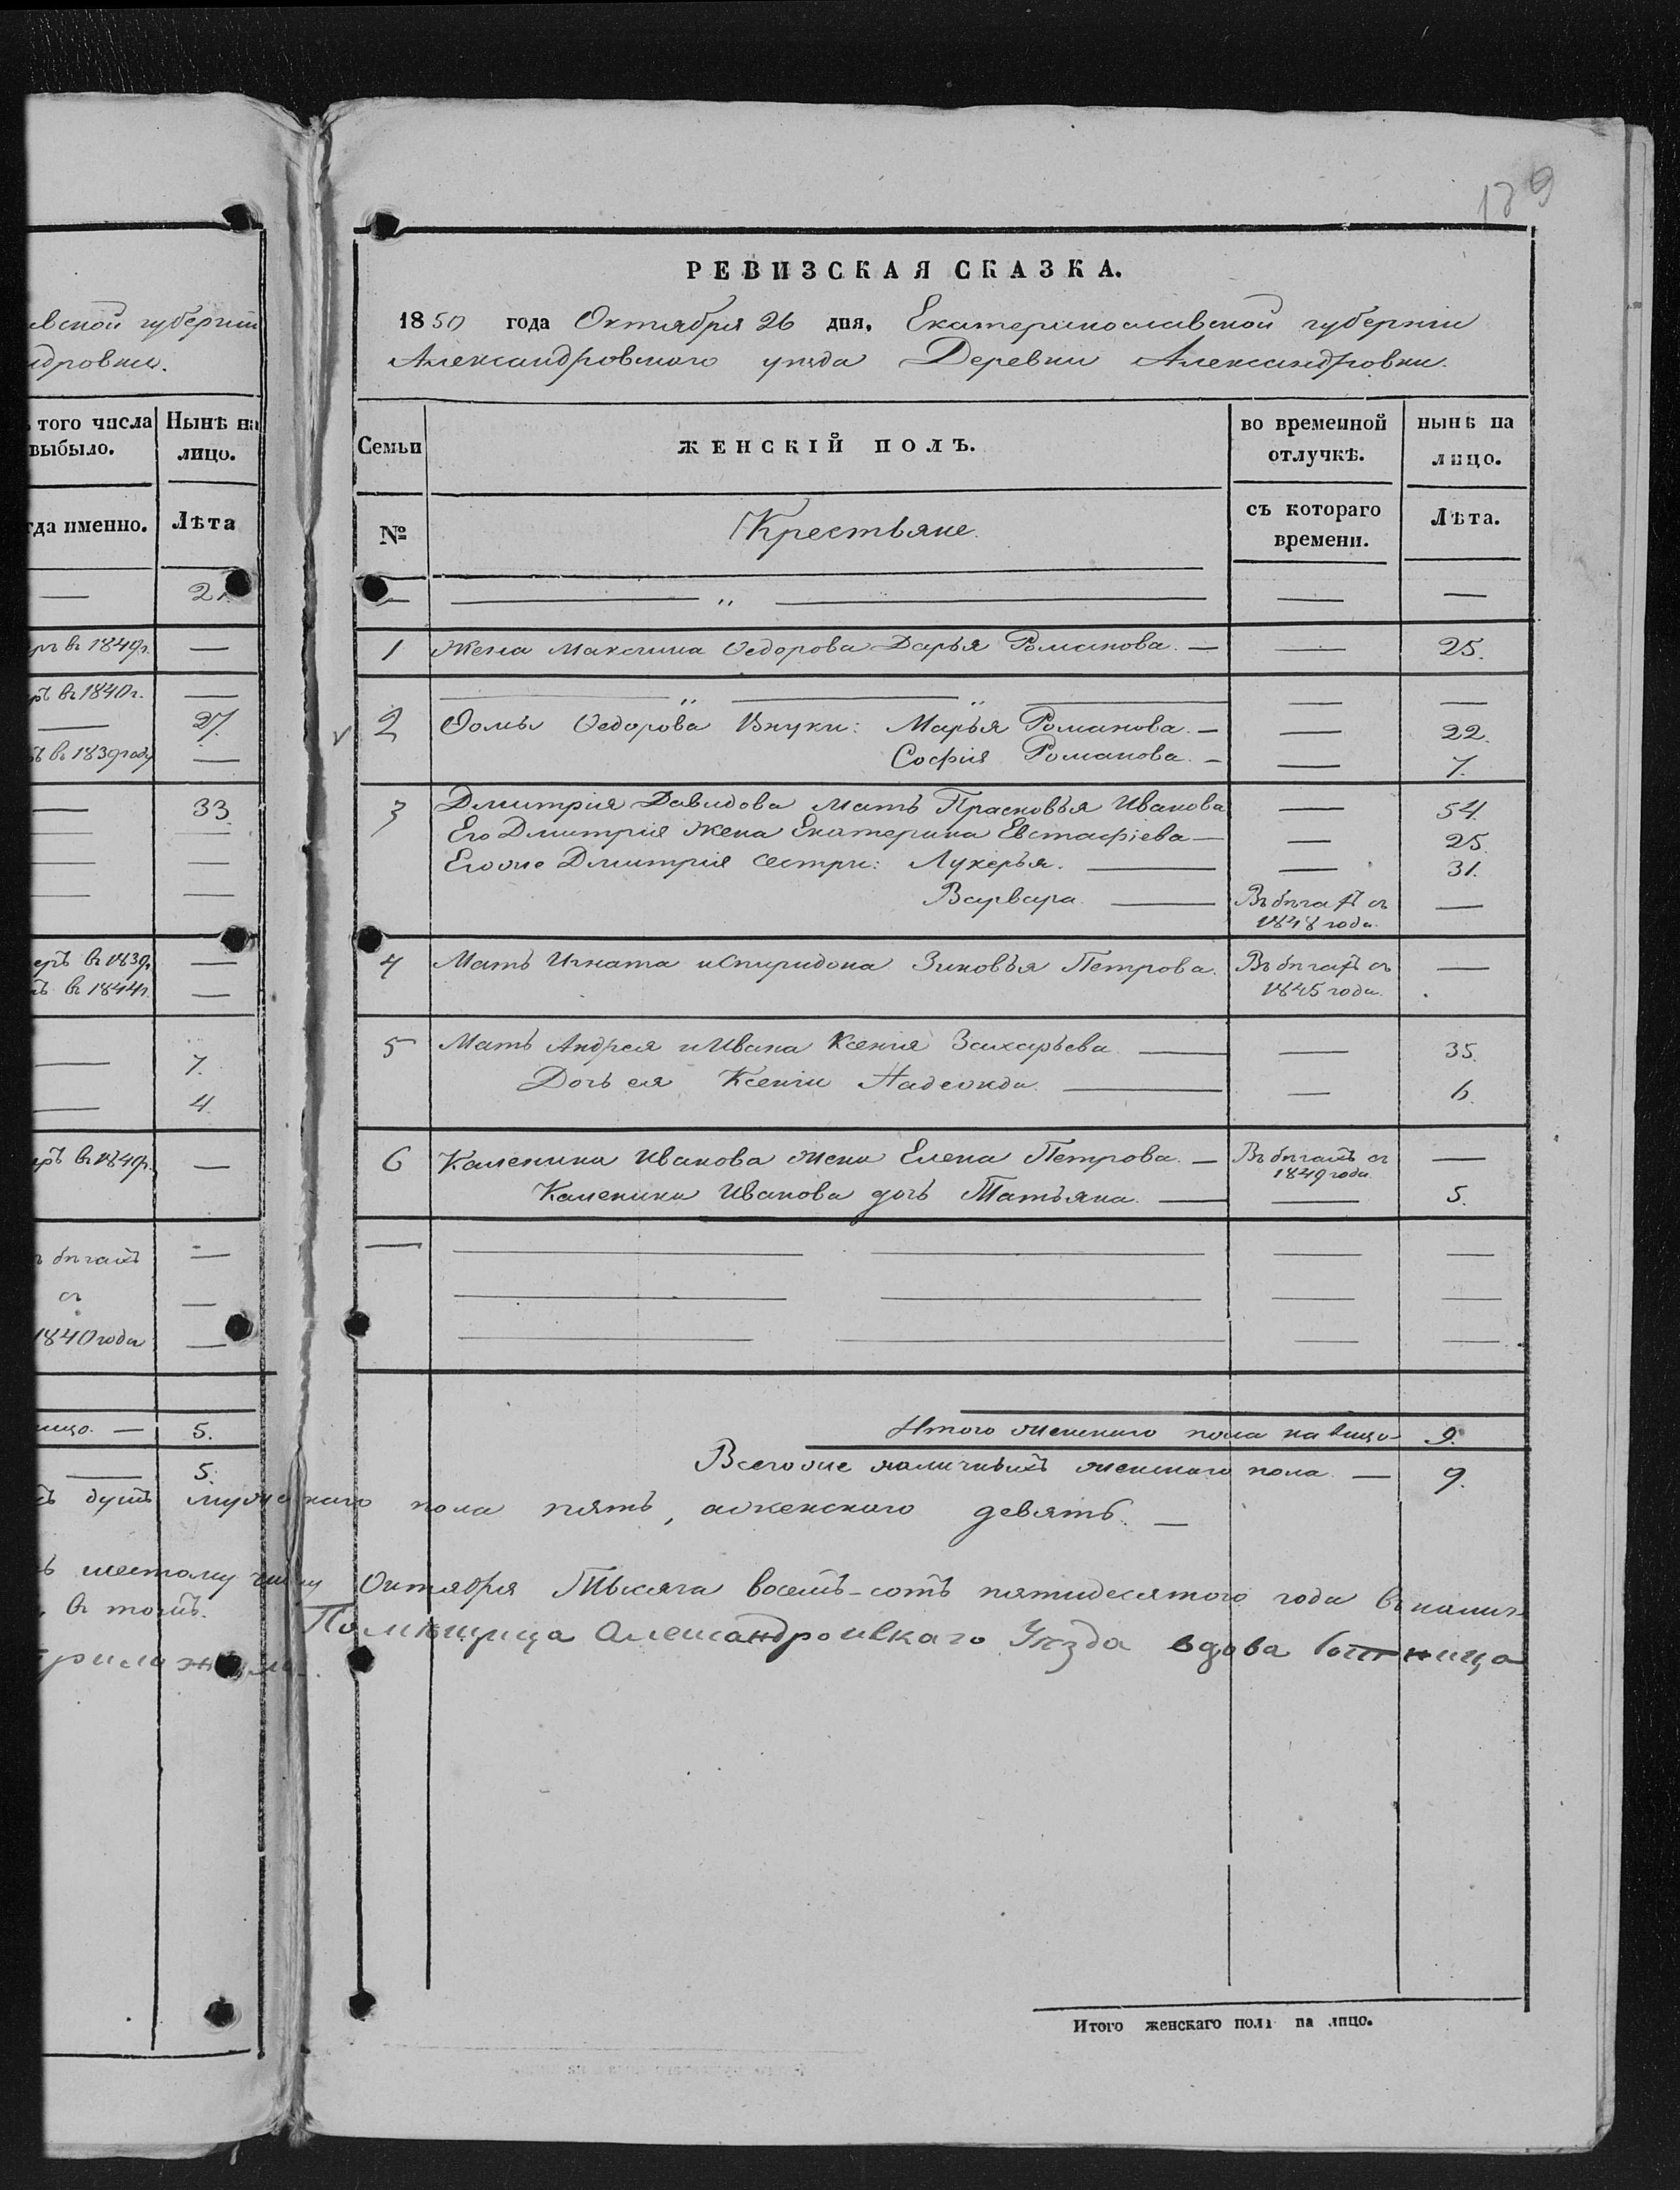 189
РЕВИЗСКАЯ СКАЗКА.
1850 года Октября 26 дня, Екатеринославской губерніи
Александровскаго уезда Деревни Александровки.
Семьи
ЖЕНСКІЙ ПОЛЪ.
во временной отлучкѣ.
нынѣ на лицо.
№
Крестьяне.
съ котораго времени.
Лѣта.
— — „ — — —
1 Жена Максима Ѳедорова Дарья Романова. — — 25.
— „ — „ — — —
2 Ѳомы Ѳедорова Внуки: Марья Романова. — — 22.
Софія Романова. — — 7.
3 Дмитрія Давидова Мать Прасковья Иванова — 54.
Его Дмитрія Жена Екатерина Евстафіева — — 25.
Егоже Дмитрія сестры: Лукерья. — — 31.
Варвара. — Въ бѣгахъ съ 1848 года. —
4 Мать Игната и Спиридона Зиновья Петрова. Въ бѣгахъ съ 1845 года. —
5 Мать Андрея и Ивана Ксенія Захарьева — — 35.
Дочь ея Ксеніи Надежда. — — 6.
6 Каленика Иванова жена Елена Петрова. — Въ бѣгахъ съ 1849 года. —
Каленика Иванова дочь Татьяна. — — 5.
Итого женскаго пола на лицо 9.
Всего же наличныхъ женскаго пола. — 9.
пола пять, аженскаго девять. —
Октября Тысяча восемь-сотъ пятидесятого года
Помѣщица Александровскаго Уѣзда вдова
Итого женскаго пола на лицо.
вской губерніи
ндровки.
того числа выбыло.
Нынѣ на лицо.
гда именно.
Лѣта
— 21.
въ 1849г. —
въ 1840г. —
— 27.
въ 1839 году —
— 33.
въ 1839г. —
въ 1844г. —
— 7.
— 4.
въ 1849г. —
бѣгахъ —
съ —
1840 года —
лицо. — 5.
— 5.
душъ мужескаго
шестому числу
въ томъ.